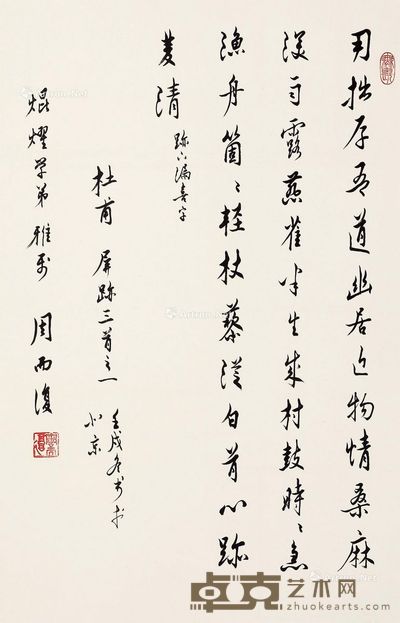 用拙存吾道幽居近物情桑麻
深雨露燕雀半生成村鼓時〻急
漁舟箇〻輕杖藜從白首心跡
雙清 跡下漏喜字
杜甫 屏跡三首之一 壬戌冬
北京
焜燿學弟雅屬 周而復
卓克艺术网
zhuokearts.com